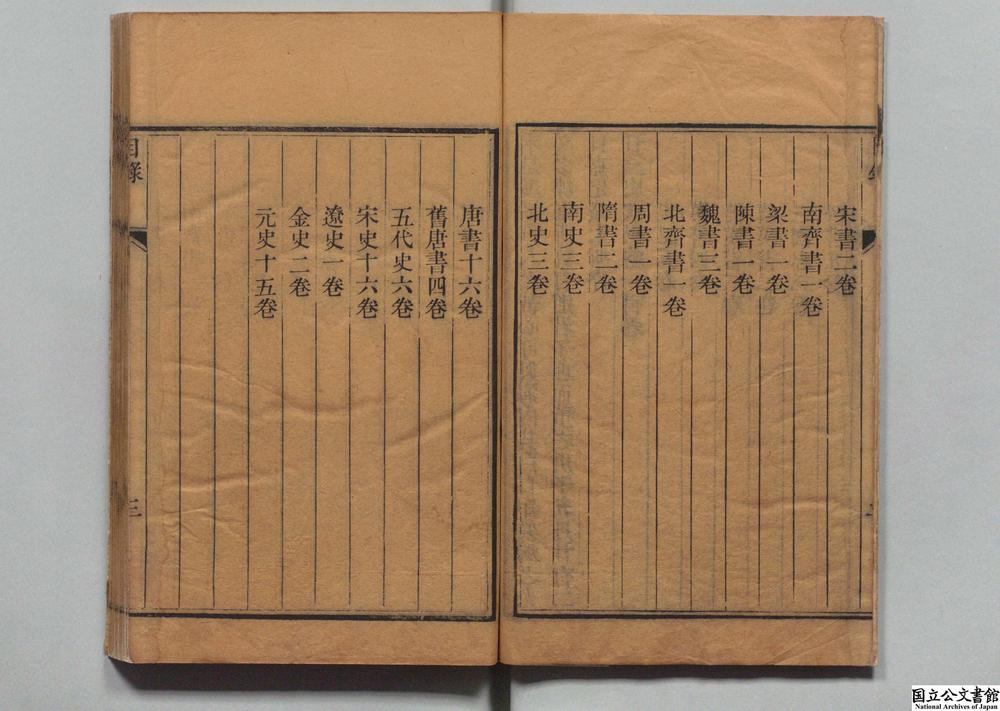 宋書二卷
南齊書一卷
梁書一卷
陳書一卷
魏書三卷
北齊書一卷
周書一卷
隋書二卷
南史三卷
北史三卷
唐書十六卷
舊唐書四卷
五代史六卷
宋史十六卷
遼史一卷
金史二卷
元史十五卷
目錄
三
国立公文書館
National Archives of Japan